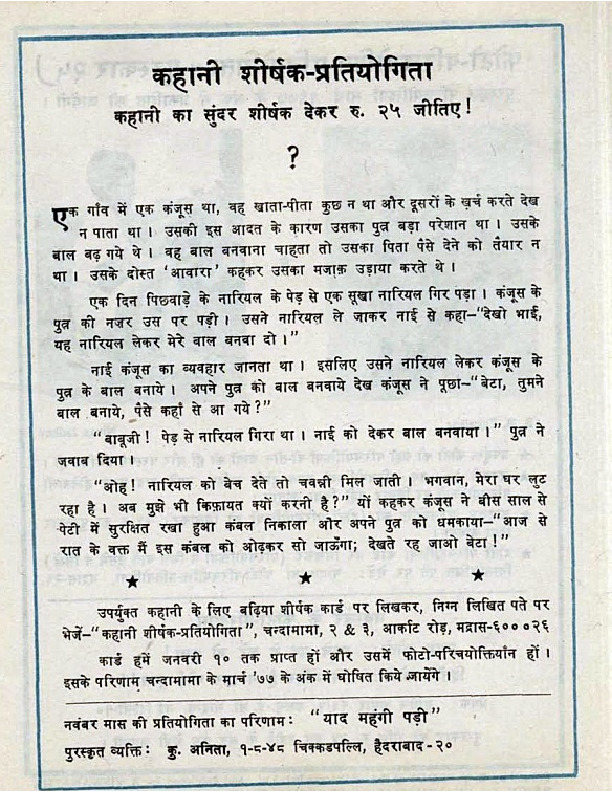 कहानी शीर्षक-प्रतियोगिता
कहानी का सुंदर शीर्षक देकर रु. २५ जीतिए!
?
एक गाँव में एक कंजूस था, वह खाता-पीता कुछ न था और दूसरों के ख़र्च करते देख
न पाता था। उसकी इस आदत के कारण उसका पुत्र बड़ा परेशान था। उसके
बाल बढ़ गये थे। वह बाल बनवाना चाहता तो उसका पिता पैसे देने को तैयार न
था। उसके दोस्त 'आवारा' कहकर उसका मज़ाक़ उड़ाया करते थे।
एक दिन पिछवाड़े के नारियल के पेड़ से एक सूखा नारियल गिर पड़ा। कंजूस के
पुत्र की नज़र उस पर पड़ी। उसने नारियल ले जाकर नाई से कहा-"देखो भाई,
यह नारियल लेकर मेरे बाल बनवा दो।"
नाई कंजूस का व्यवहार जानता था। इसलिए उसने नारियल लेकर कंजूस के
पुत्र के बाल बनाये। अपने पुत्र को बाल बनवाये देख कंजूस ने पूछा-"बेटा, तुमने
बाल बनाये, पैसे कहाँ से आ गये?"
"बाबूजी! पेड़ से नारियल गिरा था। नाई को देकर बाल बनवाया।" पुत्र ने
जवाब दिया।
"ओह! नारियल को बेच देते तो चवन्नी मिल जाती। भगवान, मेरा घर लुट
रहा है। अब मुझे भी किफ़ायत क्यों करनी है?" यों कहकर कंजूस ने बीस साल से
पेटी में सुरक्षित रखा हुआ कंबल निकाला और अपने पुत्र को धमकाया-"आज से
रात के वक्त मैं इस कंबल को ओढ़कर सो जाऊँगा; देखते रह जाओ बेटा!"
★ ★ ★
उपर्युक्त कहानी के लिए बढ़िया शीर्षक कार्ड पर लिखकर, निम्न लिखित पते पर
भेजें-"कहानी शीर्षक-प्रतियोगिता", चन्दामामा, २ & ३, आर्काट रोड़, मद्रास-६०००२६
कार्ड हमें जनवरी १० तक प्राप्त हों और उसमें फोटो-परिचयोक्तियाँन हों।
इसके परिणाम चन्दामामा के मार्च '७७ के अंक में घोषित किये जायेंगे।
नवंबर मास की प्रतियोगिता का परिणाम: "याद महंगी पड़ी"
पुरस्कृत व्यक्ति: कु. अनिता, १-८-४८ चिक्कडपल्लि, हैदराबाद-२०